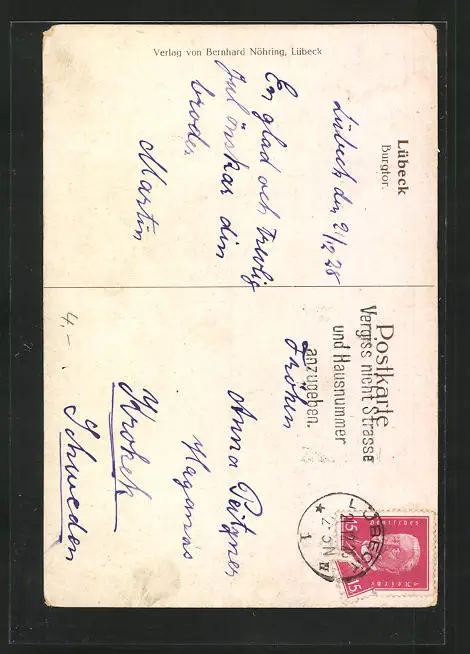 Lübeck
Burgtor.
Lübeck den 21/12 28
En glad och trevlig
Jul önskar din
broder
Martin
Verlag von Bernhard Nöhring, Lübeck
Postkarte
Vergiss nicht Strasse
und Hausnummer
anzugeben.
LÜBECK
1
Deutsches Reich
15 15
Fröken
Anna
Haganäs
Krokek
Schweden
4.-